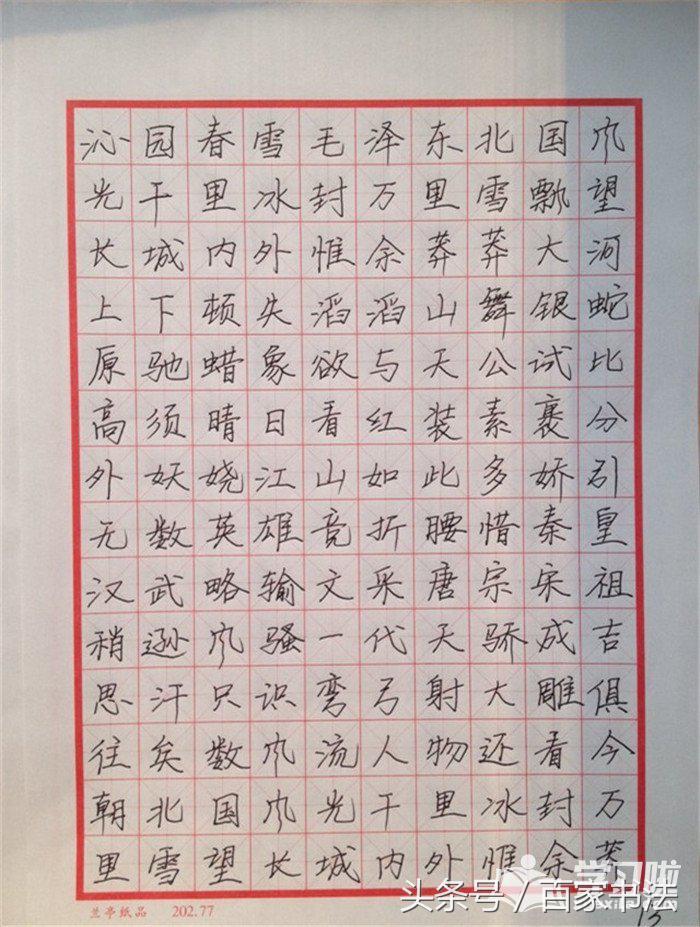 沁园春雪毛泽东北国风
光千里冰封万里雪飘望
长城内外惟余莽莽大河
上下顿失滔滔山舞银蛇
原驰蜡象欲与天公试比
高须晴日看红装素裹分
外妖娆江山如此多娇引
无数英雄竞折腰惜秦皇
汉武略输文采唐宗宋祖
稍逊风骚一代天骄成吉
思汗只识弯弓射大雕俱
往矣数风流人物还看今
朝北国风光千里冰封万
里雪望长城内外惟余莽
兰亭纸品 202.77
学习啦
头条号/百家书法